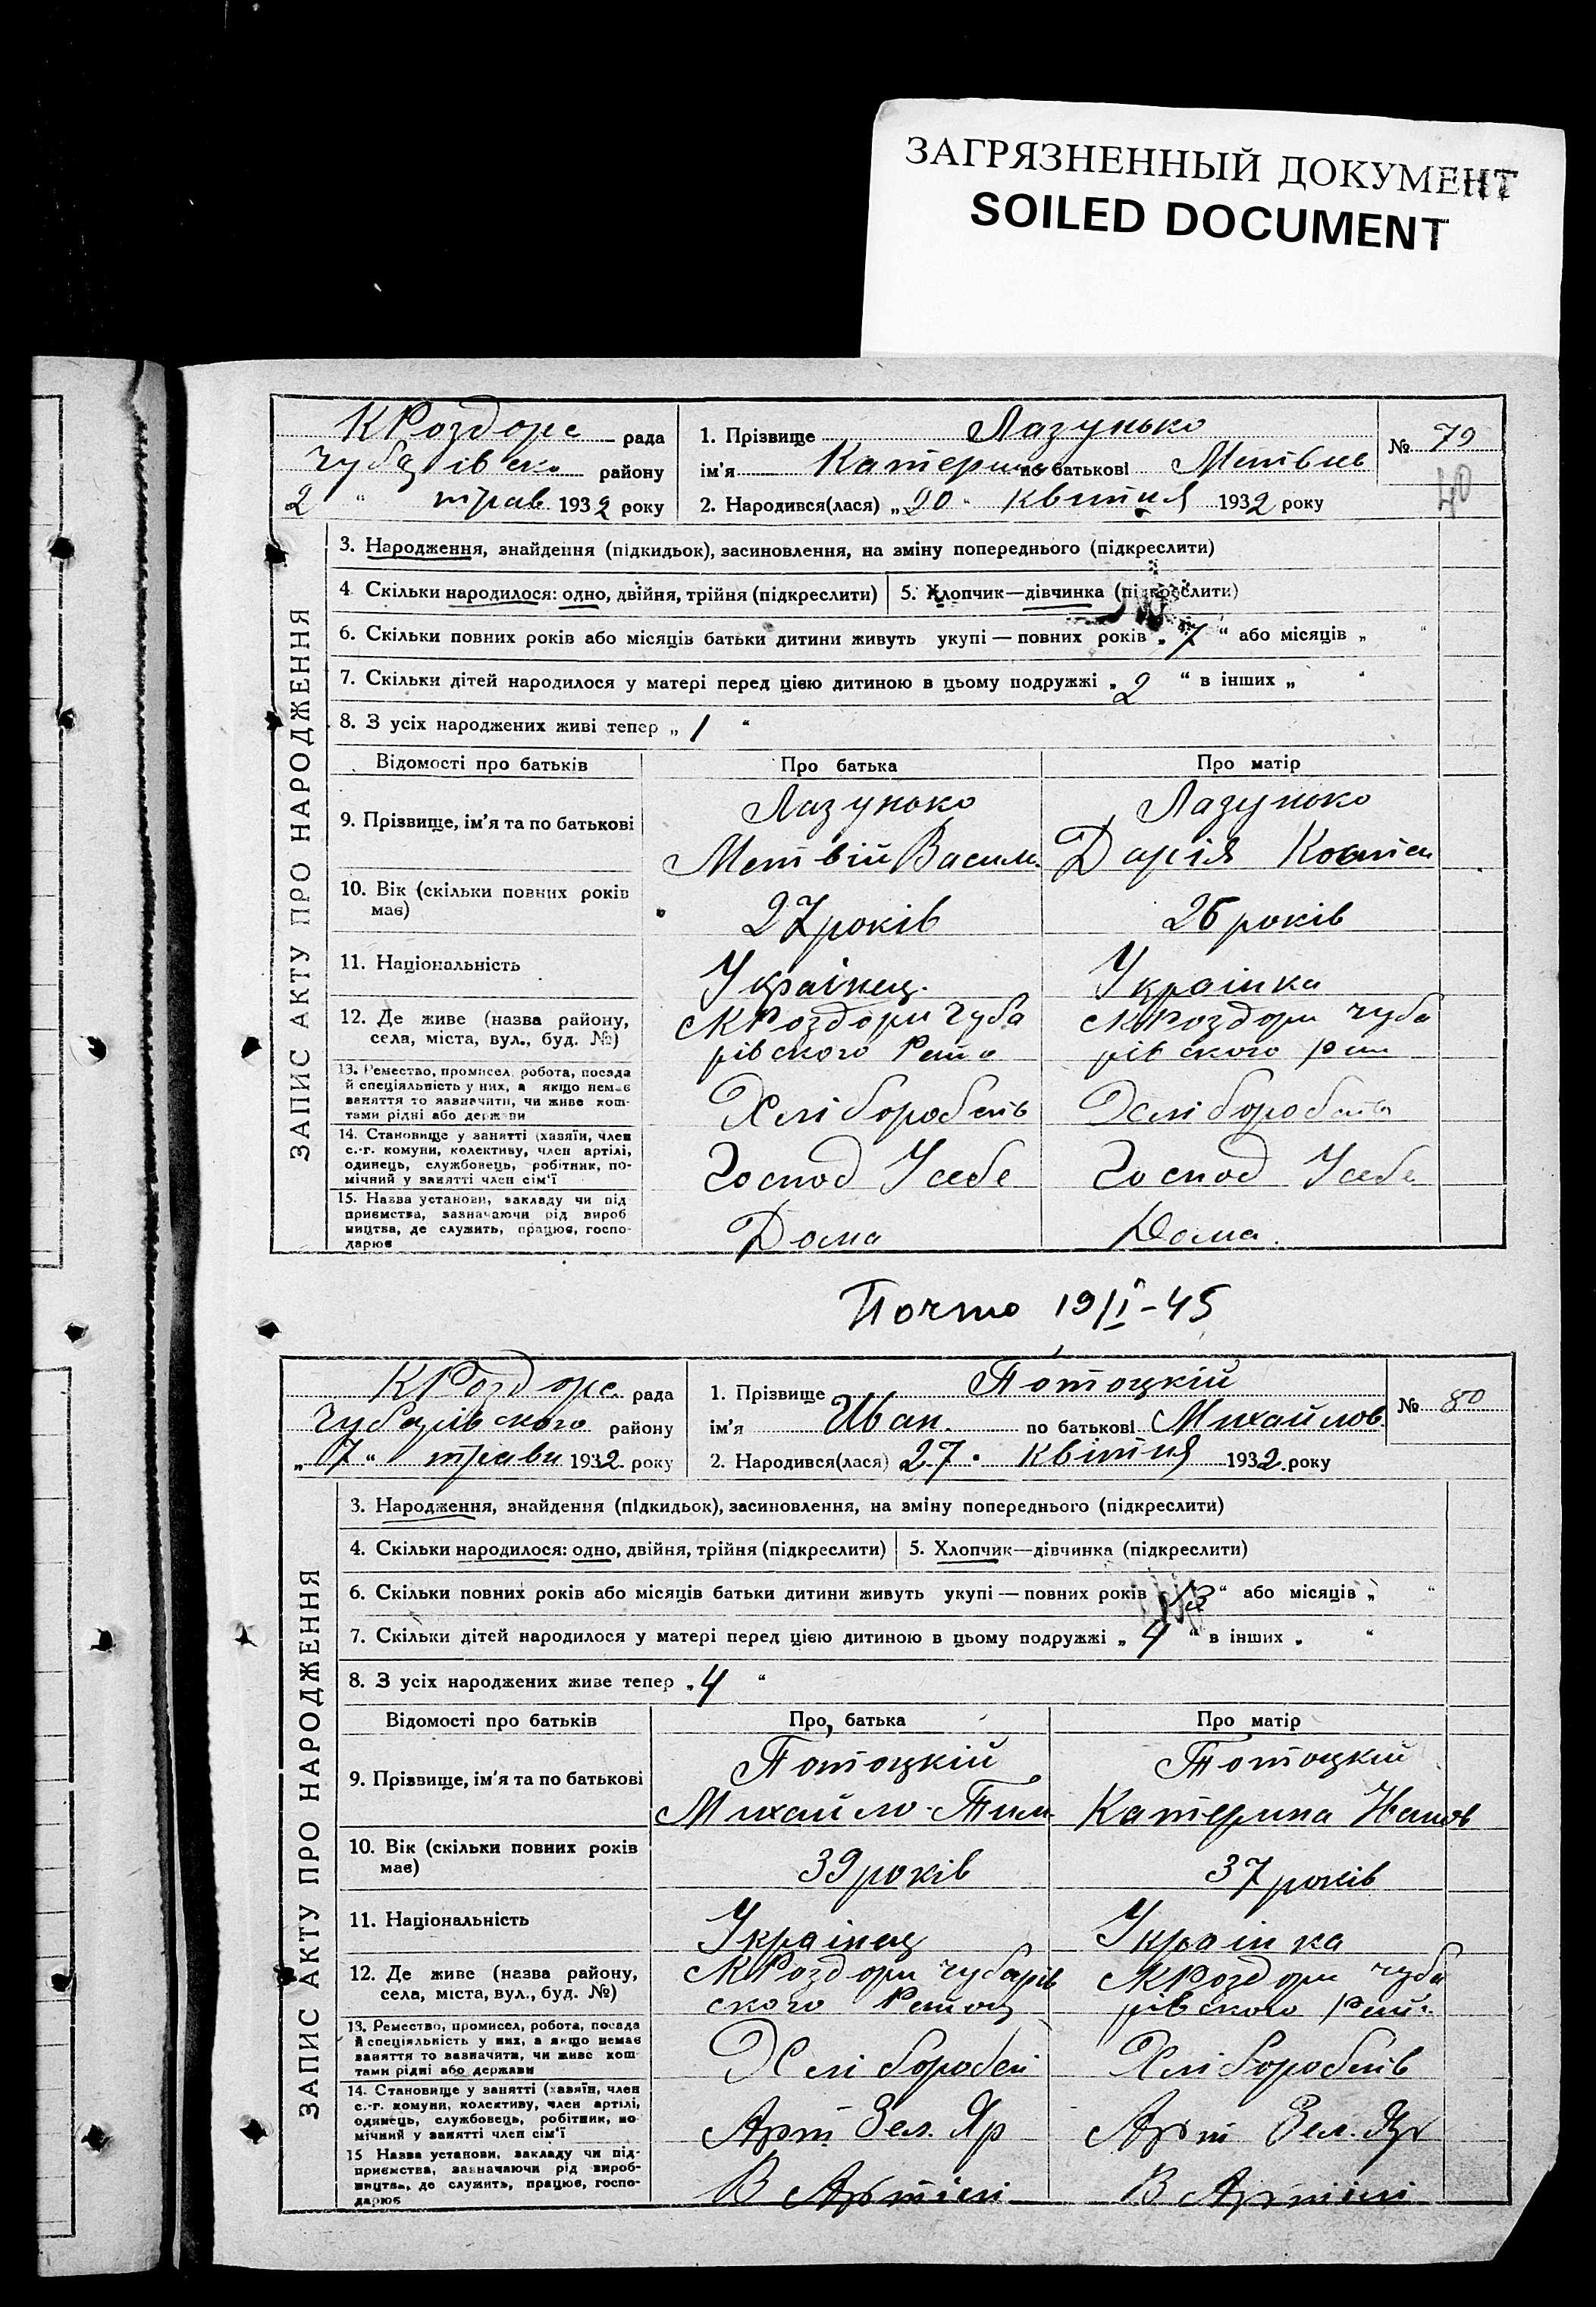 ЗАГРЯЗНЕННЫЙ ДОКУМЕНТ
SOILED DOCUMENT
К Роздорс рада
Чубарівськ району
2 " трав 1932 року
1. Прізвище Лазунько
ім'я Катерина по батькові Метвіев
2. Народився(лася) „20" Квітня 1932 року
№ 79
40
ЗАПИС АКТУ ПРО НАРОДЖЕННЯ
3. Народження, знайдення (підкидьок), засиновлення, на зміну попереднього (підкреслити)
4. Скільки народилося: одно, двійня, трійня (підкреслити)
5. Хлопчик—дівчинка (підкреслити)
6. Скільки повних років або місяців батьки дитини живуть укупі — повних років „7" або місяців „ "
7. Скільки дітей народилося у матері перед цією дитиною в цьому подружжі „2 " в інших „ "
8. З усіх народжених живі тепер „1 "
Відомості про батьків Про батька Про матір
9. Прізвище, ім'я та по батькові
Лазунько
Метвій Васил.
Лазунько
Дарія
10. Вік (скільки повних років має)
27 років
26 років
11. Національність
Украінец.
Украінка
12. Де живе (назва району, села, міста, вул., буд. №)
с К Роздори Чуба
рівского
с К Роздори Чуба
рівского
13. Ремество, промисел, робота, посада
й спеціяльність у них, а якщо немає
заняття то зазначити, чи живе кош-
тами рідні або держави
Хлібороб
Хлібороб
14. Становище у занятті (хазяїн, член
с.-г. комуни, колективу, член артілі,
одинець, службовець, робітник, по-
мічний у занятті член сім'ї
Господ У себе
Господ У себе
15. Назва установи, закладу чи під
приємства, зазначаючи рід вироб
ництва, де служить, працює, госпо-
дарює
Дома
Дома.
19/I-45
К Роздорс. рада
Чубарівского району
„7" трави 1932 року
1. Прізвище Потоцкій
ім'я Иван. по батькові Михайлов.
2. Народився(лася) 27. Квітня 1932 року
№ 80
ЗАПИС АКТУ ПРО НАРОДЖЕННЯ
3. Народження, знайдення (підкидьок), засиновлення, на зміну попереднього (підкреслити)
4. Скільки народилося: одно, двійня, трійня (підкреслити)
5. Хлопчик—дівчинка (підкреслити)
6. Скільки повних років або місяців батьки дитини живуть укупі — повних років " або місяців „ "
7. Скільки дітей народилося у матері перед цією дитиною в цьому подружжі „4 " в інших „ "
8. З усіх народжених живе тепер „4 "
Відомості про батьків Про батька Про матір
9. Прізвище, ім'я та по батькові
Потоцкій
Михайло Тим.
Потоцкий
Катерина Иванов
10. Вік (скільки повних років має)
39 років
37 років
11. Національність
Украінец
Украінка
12. Де живе (назва району, села, міста, вул., буд. №)
с К Роздори Чубарів
ского
с К Роздори Чуба
рівского
13. Ремество, промисел, робота, посада
й спеціяльність у них, а якщо немає
заняття то зазначити, чи живе кош
тами рідні або держави
Хлібороб
Хлібороб
14. Становище у занятті (хазяїн, член
с.-г. комуни, колективу, член артілі,
одинець, службовець, робітник, по
мічний у занятті член сім'ї
Арт Зел. Яр
Арт Зел. Яр
15 Назва установи, закладу чи під-
приємства, зазначаючи рід вироб-
ництва, де служить, працює, госпо-
дарює
В Артілі
В Артілі